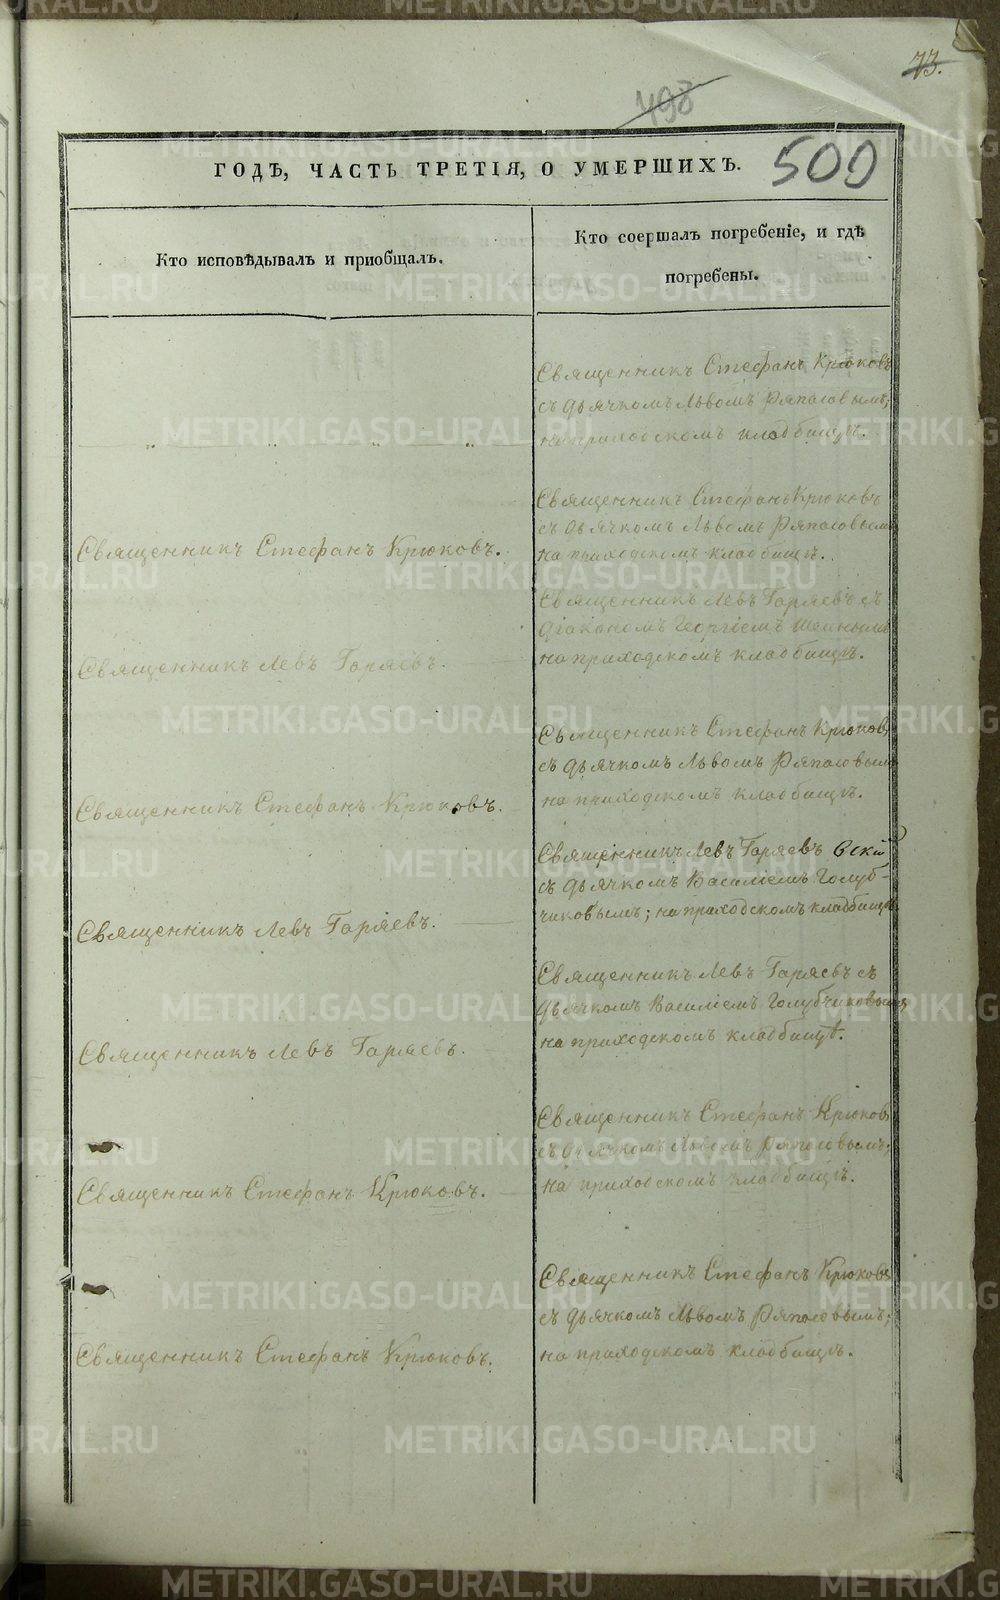 73.
498
500
ГОДЪ, ЧАСТЬ ТРЕТІЯ, О УМЕРШИХЪ.
Кто исповѣдывалъ и приобщалъ.
Кто соершалъ погребеніе, и гдѣ
погребены.
Священникъ Стефанъ Крюковъ
съ дьячкомъ Львомъ Ряпасовымъ;
на приходскомъ кладбищѣ.
Священникъ Стефанъ Крюковъ.
Священникъ Стефанъ Крюковъ
съ дьячкомъ Львомъ Ряпасовым
на приходскомъ кладбищѣ.
Священникъ Левъ Гаряевъ.
Священникъ Левъ Гаряевъ съ
діакономъ Георгіемъ
на приходскомъ кладбищѣ.
Священникъ Стефанъ Крюковъ.
Священникъ Стефанъ Крюковъ
съ дьячкомъ Львомъ Ряпасовым
на приходскомъ кладбищѣ.
Священникъ Левъ Гаряевъ.
Священникъ Левъ Гаряевъ
съ дьячкомъ Василіемъ Голуб-
чиковымъ; на приходскомъ кладбищѣ
Священникъ Левъ Гаряевъ.
Священникъ Левъ Гаряевъ съ
дьячкомъ Василіемъ Голубчиковымъ
на приходскомъ кладбищѣ.
Священникъ Стефанъ Крюковъ.
Священникъ Стефанъ Крюковъ
съ дьячкомъ Львомъ Ряпасовымъ;
на приходскомъ кладбищѣ.
Священникъ Стефанъ Крюковъ.
Священникъ Стефанъ Крюковъ
съ дьячкомъ Львомъ Ряпасовымъ;
на приходскомъ кладбищѣ.
METRIKI.GASO-URAL.RU